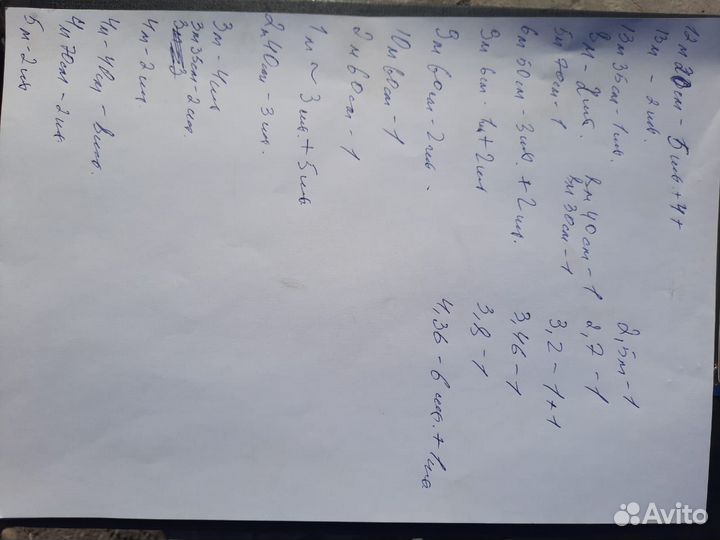 12м 20см - 5шт + 4 +
13м - 2шт.
13м 35см - 1шт.
8м - 2шт.
8м 40см - 1
5м 70см - 1
8м 30см - 1
6м 50см - 3шт. + 2шт.
9м 6см - 1ш + 2шт
9м 60см - 2шт.
10м 60см - 1
2м 60см - 1
1м ~ 3шт. + 5шт
2м 40см - 3шт.
3м - 4шт
3м 35см - 2шт.
4м - 2шт
4м - 48см - 8шт.
4м 70см - 2шт.
5м - 2шт
2,5м - 1
2,7 - 1
3,2 - 1 + 1
3,46 - 1
3,8 - 1
4,36 - 6шт. + 1шт
Avito